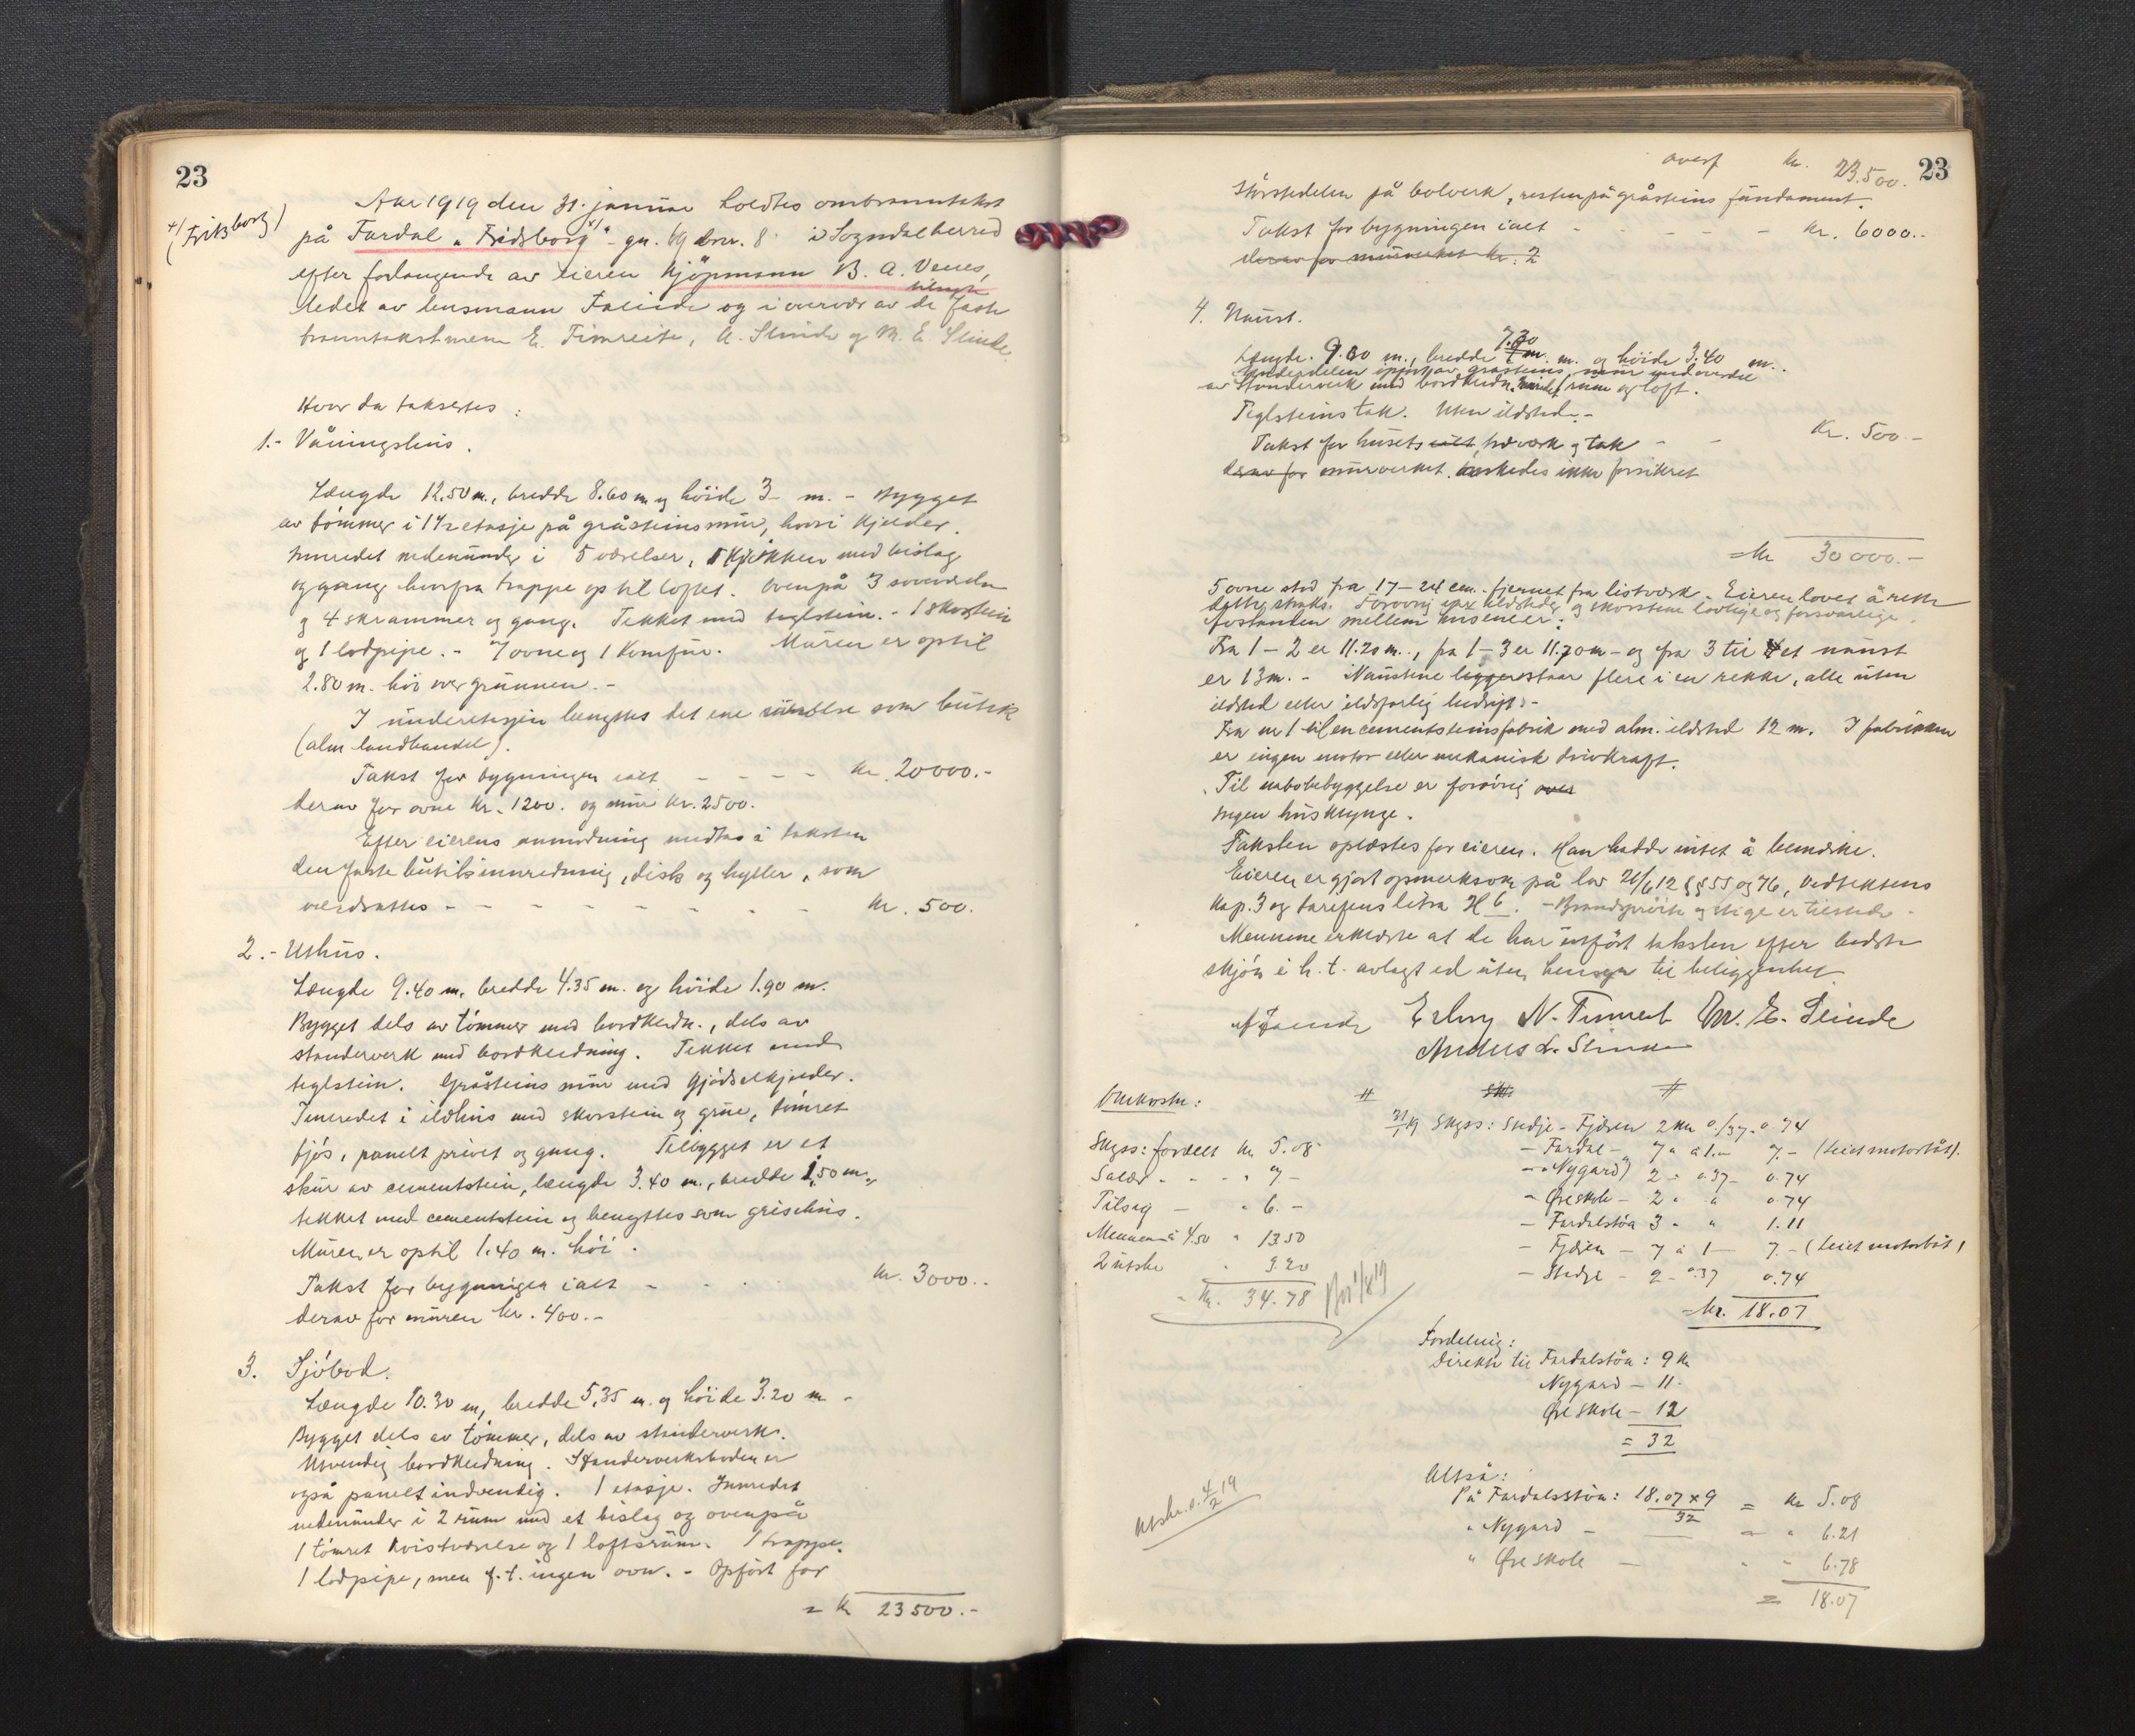 23
Aar 1919 den 31. januar holdtes ombranntakst
x/ (Fritsborg)
på Fardal "Fridsborg" x/ - gn. 69 brn. 8 i Sogndal herred
efter forlangende av eieren kjöpmann B. A. Venes,
ledet av lensmann Faleide og i overvær av de faste
tilsyn
branntakstmenn E. Timreite, A. Slinde og M. E. Slinde.
Hvor da taksertes:
1.- Våningshus.
Længde 12.50 m., bredde 8.60 m og höide 3 m. - Bygget
av tömmer i 1½ etasje på gråsteinsmur, hvori kjelder.
Innredet nedenunder i 5 værelser, 1 kjökken med bislag
og gang hvorfra trappe op til loftet. Ovenpå 3 soveværelser
og 4 skrammer og gang. Tekket med teglstein. - 1 skorstein
og 1 lodpipe. - 7 ovne og 1 komfur. Muren er optil
2.80 m. höi over grunnen. -
I underetasjen benyttes det ene værelse som butik
(alm landhandel).
Takst for bygningen ialt - - - - kr. 20000.-
derav for ovne kr. 1200. og mur kr. 2500.
Efter eierens anmodning medtas i taksten
den faste butiksinnredning, disk og hyller, som
værdsattes - - - - - - - - kr. 500.
2.- Uthus.
Længde 9.40 m. bredde 4.35 m. og höide 1.90 m.
Bygget dels av tömmer med bordkledn., dels av
standerverk med bordkledning. Tekket med
teglstein. Gråsteins mur med gjödselkjelder.
Innredet i ildhus med skorstein og grue, tömret
fjös, panelt privet og gang. Tilbygget er et
skur av cementstein, længde 3.40 m., bredde 1,50 m.,
tekket med cementstein og benyttes som grisehus.
Muren er optil 1.40 m. höi.
Takst for bygningen ialt - - - kr. 3000..
derav for muren kr. 400.-
3. Sjöbod.
Længde 10.30 m, bredde 5,35 m. og höide 3.20 m -
Bygget dels av tömmer, dels av standerverk.
Utvendig bordkledning. Standerverksboden er
også panelt indvendig. 1 etasje. Innredet
nedenunder i 2 rum med et bislag og ovenpå
1 tömret kvistværelse og 1 loftsrum. 1 trappe.
1 lodpipe, men f.t. ingen ovn. - Opfört for
= kr 23500.-
overf kr. 23.500.
23
störstedelen på bolverk, resten på gråsteins fundament.
Takst for bygningen ialt - - - - - kr. 6000..
derav for murverket kr. 2
4. Naust.
Længde. 9.00 m., bredde 7.20 m. og höide 3.40 m..
Underdelen opfört av gråsteins mur med overdel
av standerverk med bordkledn. Innredet rum og loft.
Teglsteins tak. Uten ildsted.-
Takst for husets ialt, træverk og tak - - kr. 500.-
derav for murverket. önskedes ikke forsikret
= kr 30000.-
5 ovne stod fra 17-24 cm. fjernet fra listverk. Eieren lovet å rette
dette straks. Forövrig var ildsteder og skorstene lovlige og forsvarlige.
Avstanden mellem husene er:
Fra 1 - 2 er 11.20 m.., fra 1 - 3 er 11.70 m - og fra 3 til et naust
er 13 m. - Naustene ligger staar flere i en rekke, alle uten
ildsted eller ildsfarlig bedrift. -
Fra nr 1 til en cementsteinsfabrik med alm. ildsted 12 m. I fabrikken
er ingen motor eller mekanisk drivkraft.
Til nabobebyggelse er forövrig over
Ingen husklynge.
Taksten oplæstes for eieren. Han hadde intet å bemerke.
Eieren er gjort opmerksom på lov 21/6 12 §§ 55 og 76, Vedtektens
kap. 3 og tarifens litra H 6. - Brandspröite og stige er tilstede -
Mennene erklærte at de har utfört taksten efter bedste
skjön i h. t. avlagt ed uten hensyn til beliggenhet
A Faleide Erling N. Timreit M. E. Slinde
Anders L. Slinde
Omkostn:
Skyss: fordelt kr 5.08
Salær - - - " 7 -
Tilsyn - " 6. -
Mennene à 4.50 " 13.50
2 utskr " 3.20
= kr. 34.78
31/1 19 Skyss: Stedje - Fjæren 2 km 0/37. 0.74
- Fardal - 7 " à 1.- 7.- (leiet motorbåt).
- Nygard) 2 - 0.37- 0.74
- Öre skole - 2 " à 0.74
- Fardalstöa 3 - " 1.11
- Fjæren - 7 à 1 - 7.- (leiet motorbåt)
- Stedje - 2 - 0.37 0.74
= kr. 18.07
Fordeling:
Direkte til Fardalstöa: 9 km
Nygard - 11.
Öre skole - 12
= 32
Altså:
På Fardalsstöa: 18.07 x 9 = kr 5.08
32
" Nygard - = " 6.21
" Öre skole - " " 6.78
= 18.07
Utskr. s. 4/2 19